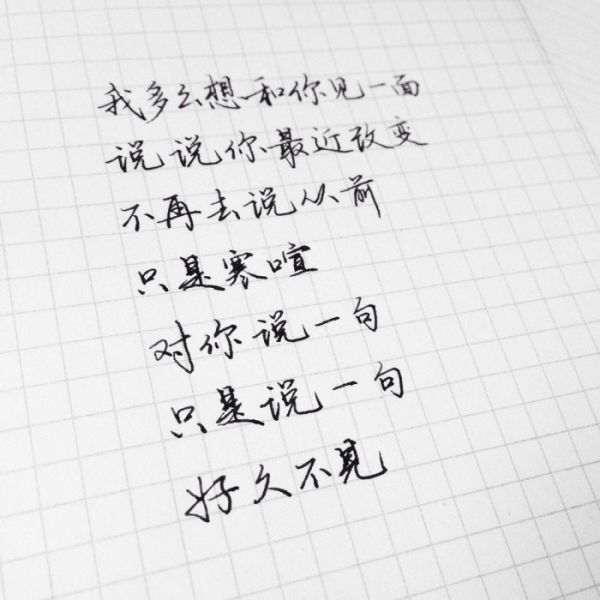 我多么想和你见一面
说说你最近改变
不再去说从前
只是寒喧
对你说一句
只是说一句
好久不见